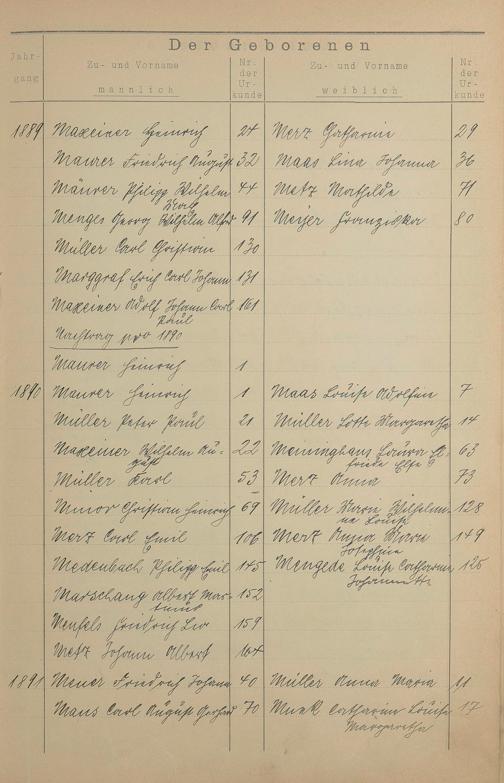 Der Geborenen
Jahr-
gang
Zu- und Vorname
männlich
Nr.
der
Ur-
kunde
Zu- und Vorname
weiblich
Nr.
der
Ur-
kunde
1889 Maxeiner Heinrich 24 Merz Catharine 29
Maurer Friedrich August 32 Maas Lina Johanna 36
Mäurer Philipp Wilhelm 44 Metz Mathilde 71
Karl
Menges Georg Wilhelm Alfred 91 Meyer Franziska 80
Müller Carl Christian 130
Marggraf Erich Carl Johann 131
Maxeiner Adolf Johann Carl 161
Paul
Nachtrag pro 1890
Maurer Heinrich 1
1890 Maurer Heinrich 1 Maas Louise Adolfine 7
Müller Peter Paul 21 Müller Lotte Margaretha 14
Maxeiner Wilhelm Au- 22 Menninghaus Laura El- 63
gust friede Else
Müller Karl 53 Merz Anna 73
Minor Christian Heinrich 69 Müller Marie Wilhelmi- 128
ne Louise
Merz Carl Emil 106 Merz Anna Marie 149
Josephine
Medenbach Philipp Emil 145 Mengede Louise Catharine 125
Johannette
Marschang Albert Mar- 152
tinus
Menfels Friedrich Leo 159
Metz Johann Albert 164
1891 Friedrich Johann 40 Müller Anna Maria 11
Maus Carl August Gerhard 70 Munk Catharine Louise 17
Margaretha